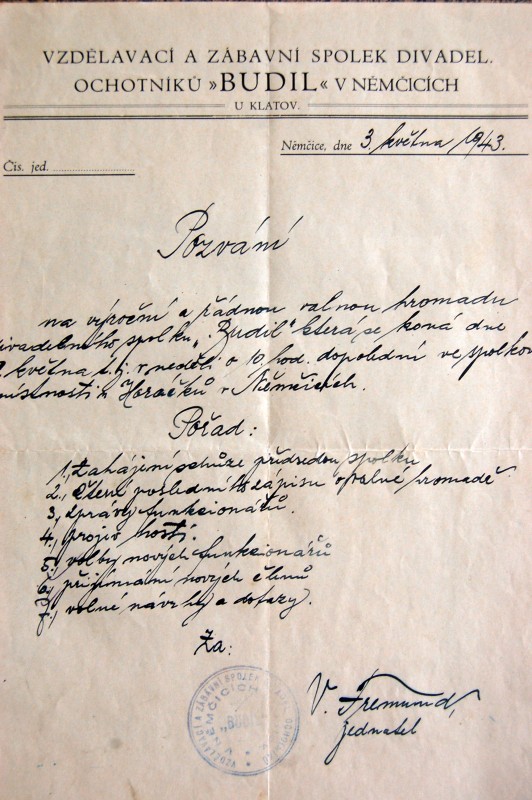 VZDĚLAVACÍ A ZÁBAVNÍ SPOLEK DIVADEL.
OCHOTNÍKŮ »BUDIL« V NĚMČICÍCH
U KLATOV.
Němčice, dne 3. května 1943.
Čís. jed.
Pozvání
na výroční a řádnou valnou hromadu
divadelního spolku „Budil" která se koná dne
května t.j. v neděli o 10. hod. dopolední ve spolkov
místnosti u Horačků v Němčicích.
Pořad:
1., Zahájení schůze předsedou spolku
2., Čtení posledního zápisu o valné hromadě
3., Zprávy funkcionářů.
4., projev hostí.
5., volby nových funkcionářů
6., přijímání nových členů
7., volné návrhy a dotazy.
Za:
V. Fremund,
jednatel
VZDĚLAVACÍ A ZÁBAVNÍ SPOLEK
V NĚMČICÍCH